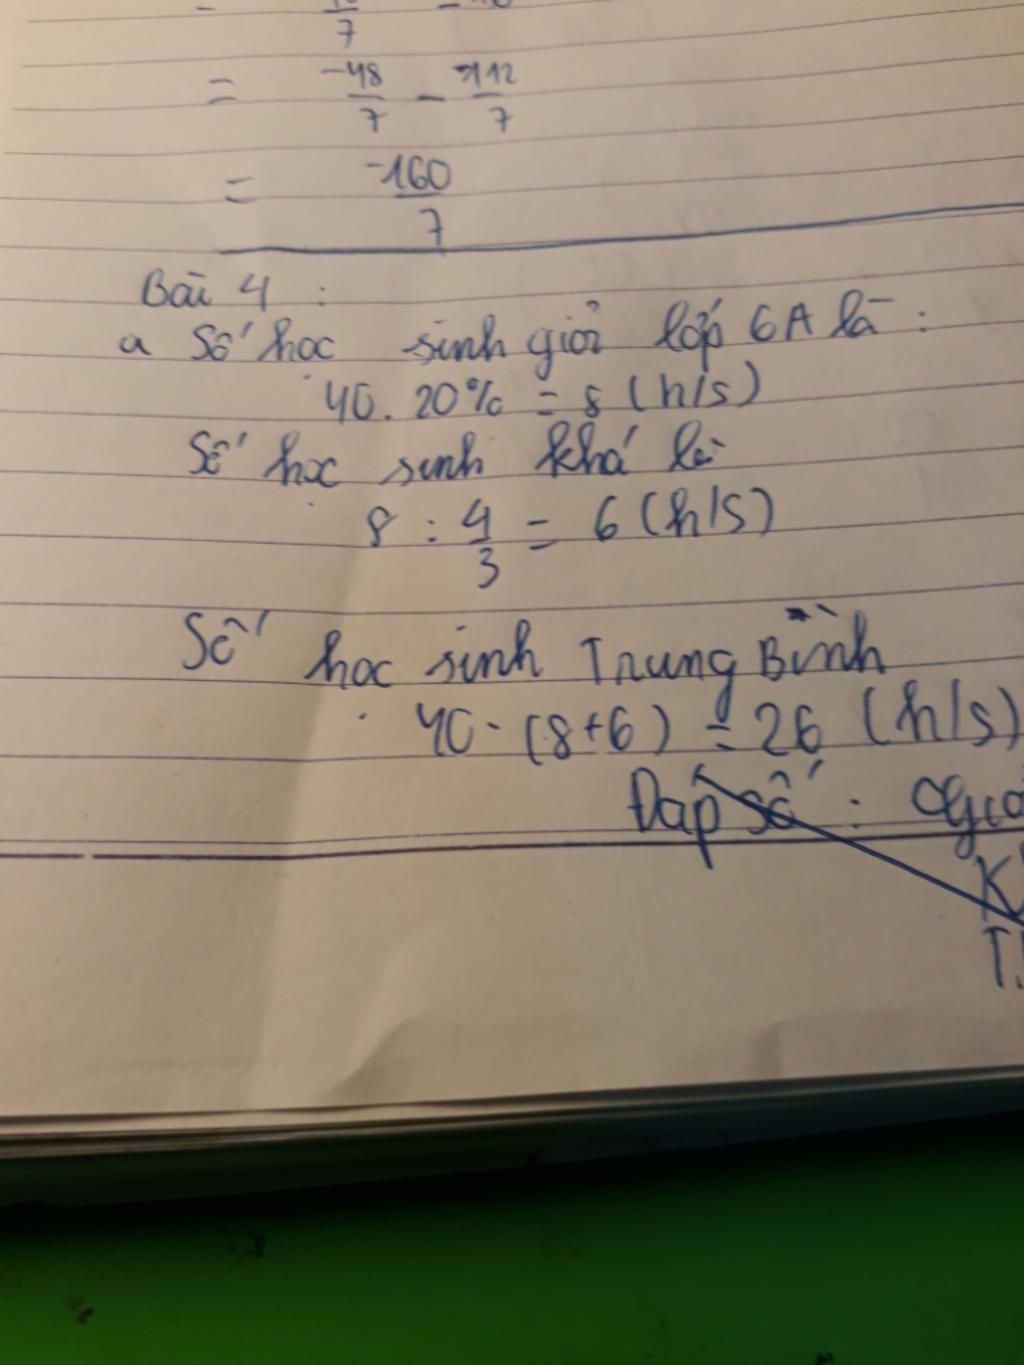 7
= -48/7 - 112/7
= -160/7
Bài 4 :
a Số học sinh giỏi lớp 6A là :
40. 20% = 8 (h/s)
Số học sinh khá là
8 : 4/3 = 6 (h/s)
Số học sinh Trung Bình
40 - (8+6) = 26 (h/s)
Đáp số :
K
T